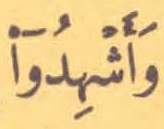 وَأَشۡهِدُوٓاْ